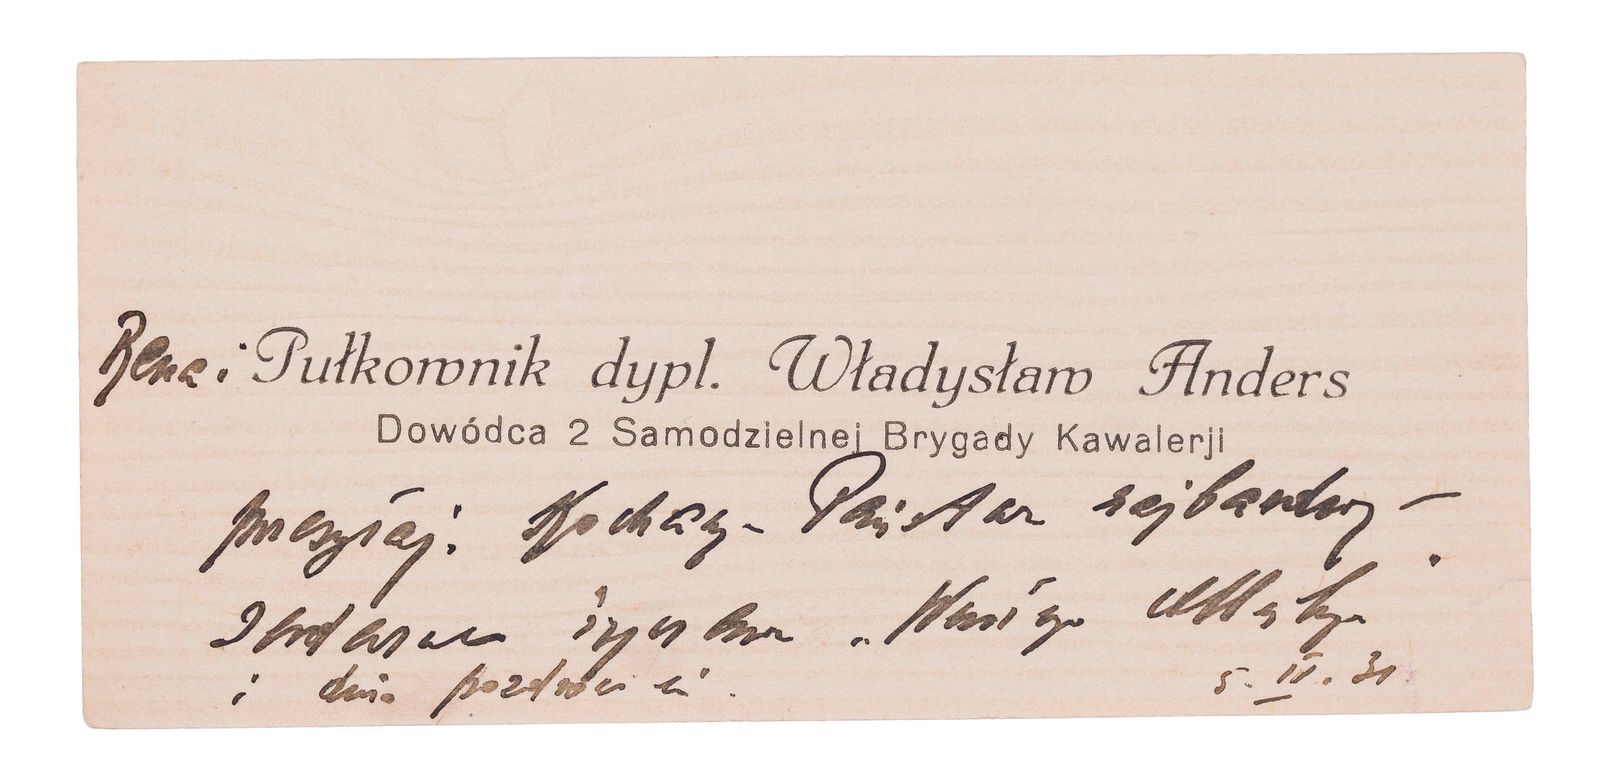 Rena i Pułkownik dypl. Władysław Anders
Dowódca 2 Samodzielnej Brygady Kawalerji
przesyłają Kochanym Państwu najbardziej
serdeczne życzenia
i pozdrowień 5.II.31